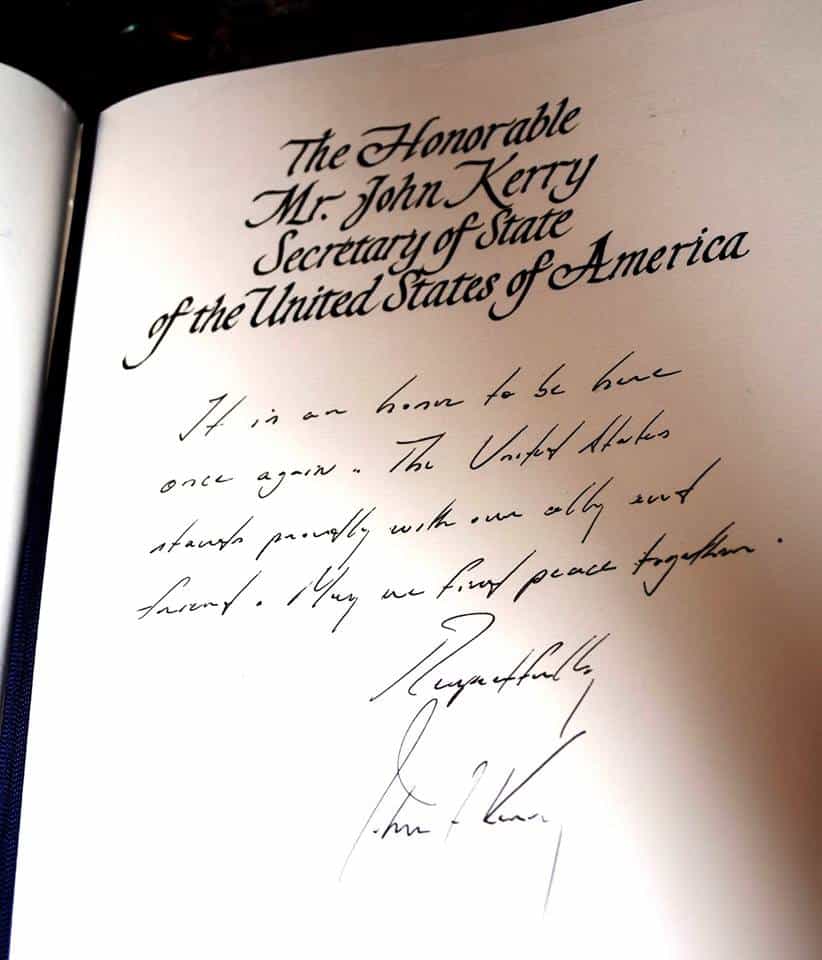 The Honorable
Mr. John Kerry
Secretary of State
of the United States of America
It is an honor to be here
once again. The United States
stands proudly with our ally and
friend. May we find peace together.
Respectfully
John F Kerry